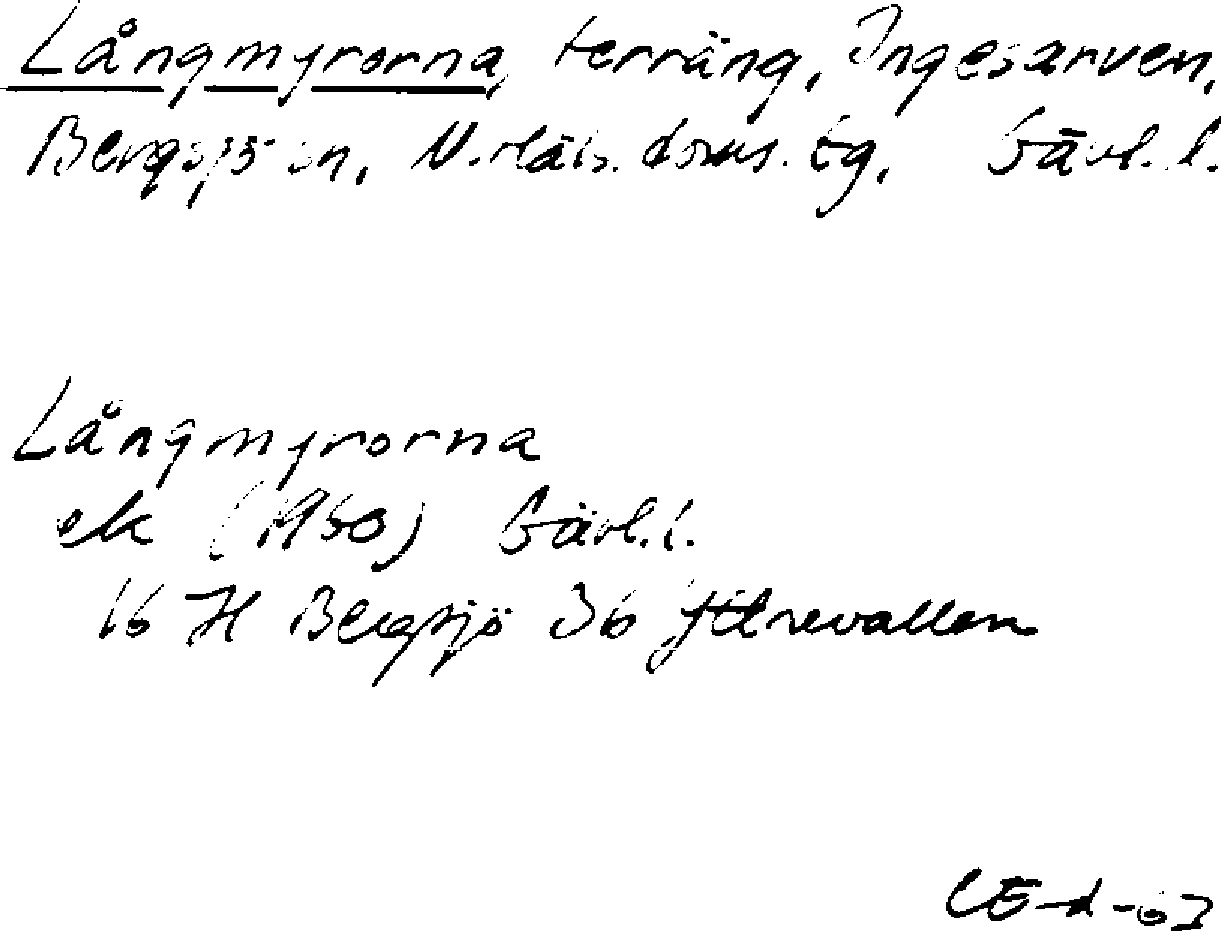 Långmyrorna, terräng, Ingesarven,
Bergsjö sn, N. Häls. doms. tg, Gävl. l.
Långmyrorna
ek (1960) Gävl. l.
16 H Bergsjö 3b
CE-d-63